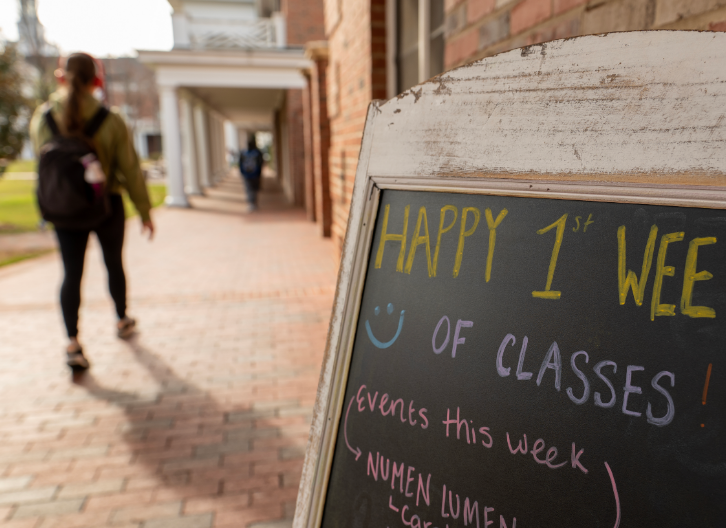 HAPPY 1st WEE
OF CLASSES!
Events this week
NUMEN LUMEN